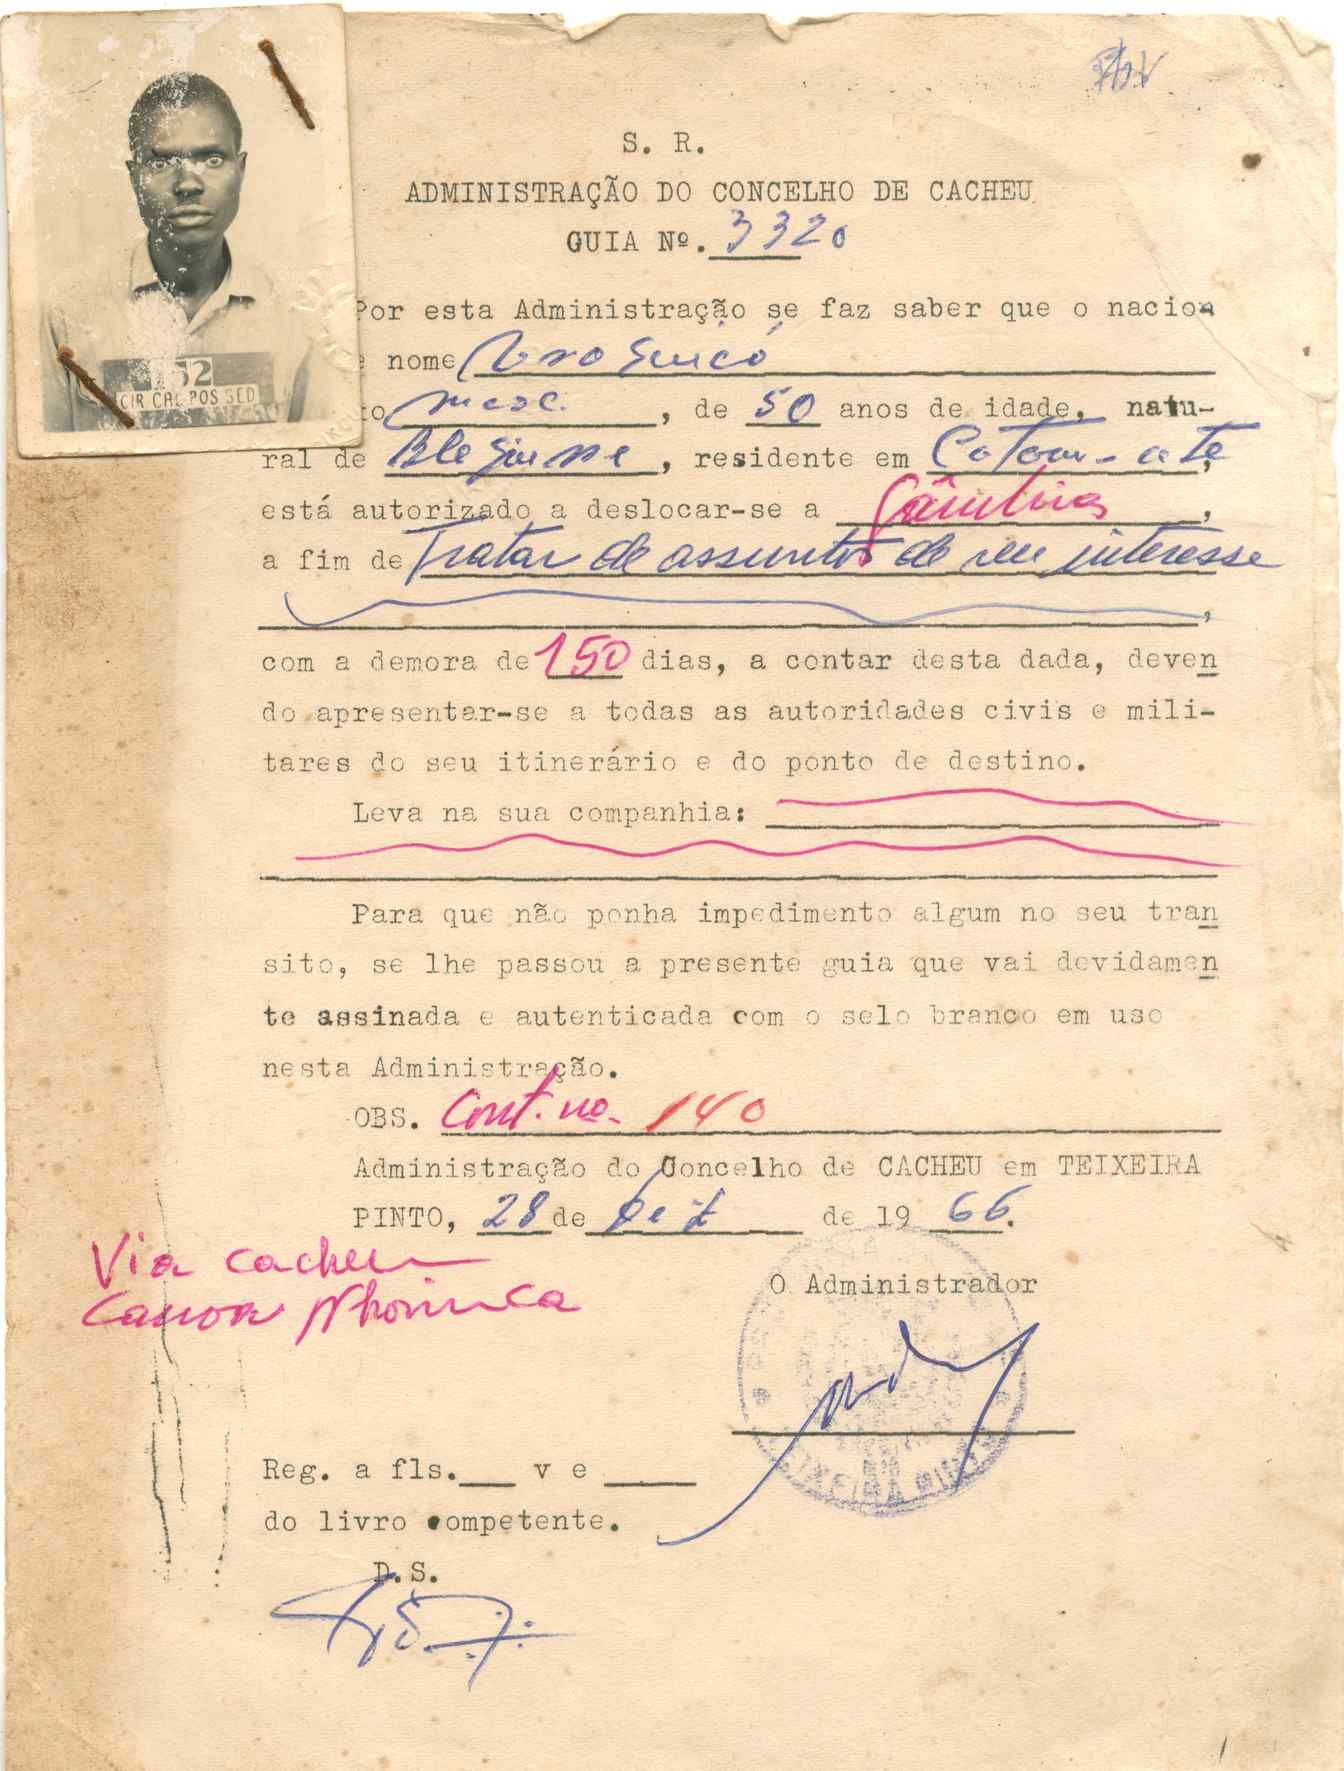 S. R.
ADMINISTRAÇÃO DO CONCELHO DE CACHEU
GUIA Nº. 3320
Por esta Administração se faz saber que o nacion
nome
152
CIR CAC POS SED
to masc. , de 50 anos de idade, natu-
ral de , residente em
está autorizado a deslocar-se a Gâmbia,
a fim de Tratar de assuntos de seu interesse
,
com a demora de 150 dias, a contar desta dada, deven
do apresentar-se a todas as autoridades civis e mili-
tares do seu itinerário e do ponto de destino.
Leva na sua companhia:
Para que não ponha impedimento algum no seu tran
sito, se lhe passou a presente guia que vai devidamen
te assinada e autenticada com o selo branco em uso
nesta Administração.
OBS. Cont. nº. 140
Administração do Concelho de CACHEU em TEIXEIRA
PINTO, 28 de de 19 66.
Via Cacheu
Canoa
O Administrador
TEIXEIRA PINTO
Reg. a fls. v e
do livro competente.
D.S.